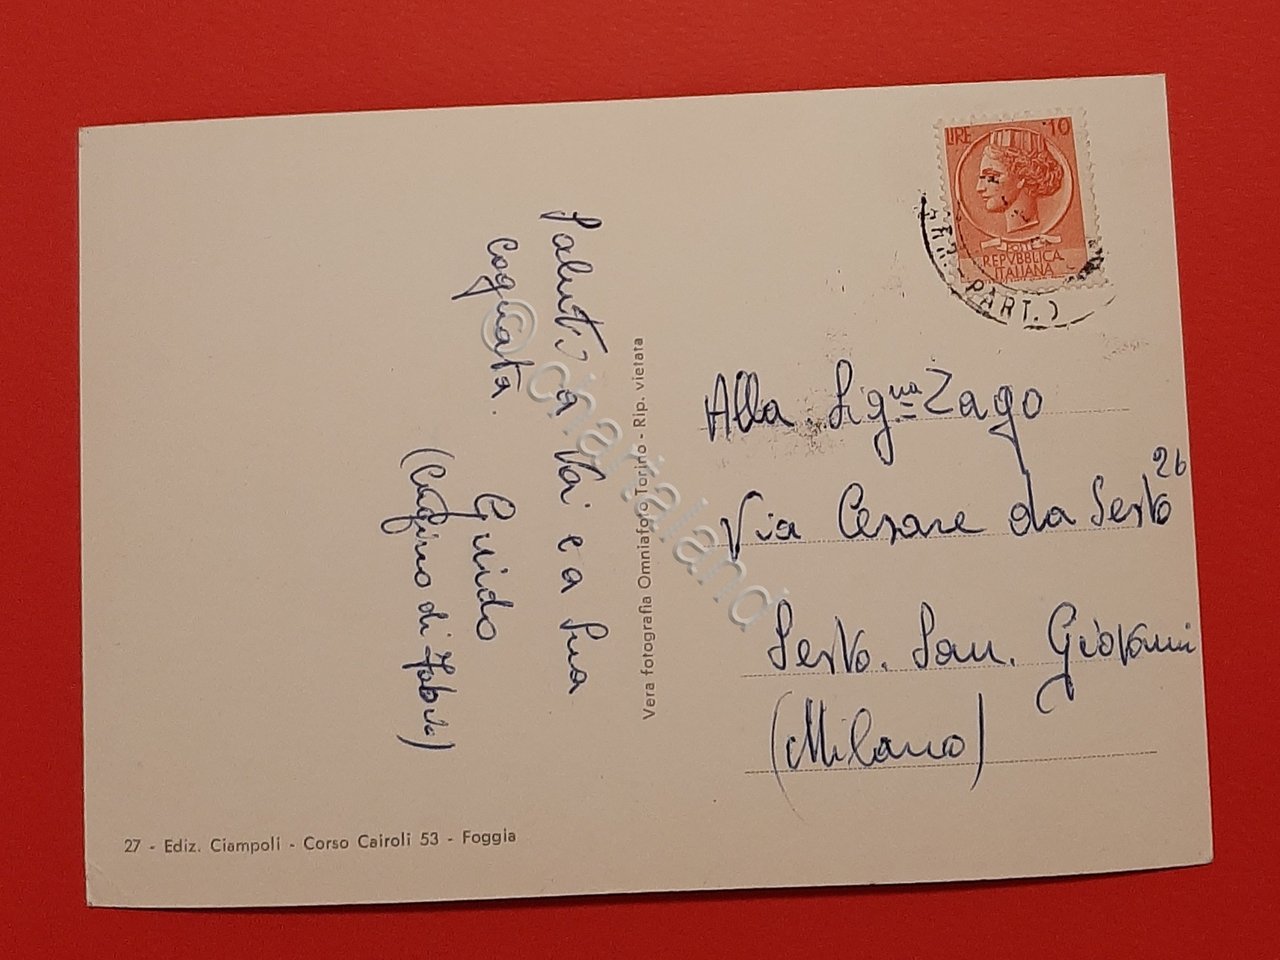 LIRE 10
POSTE
REPVBBLICA
ITALIANA
PART.)
Saluti a Voi e a Sua
Cognata.
Guido
(Cugino di Fabio)
Vera fotografia Omniafoto Torino - Rip. vietata
Alla Sig.na Zago
Via Cesare da Sesto 26
Sesto. San. Giovanni
(Milano)
27 - Ediz. Ciampoli - Corso Cairoli 53 - Foggia
© chartaland